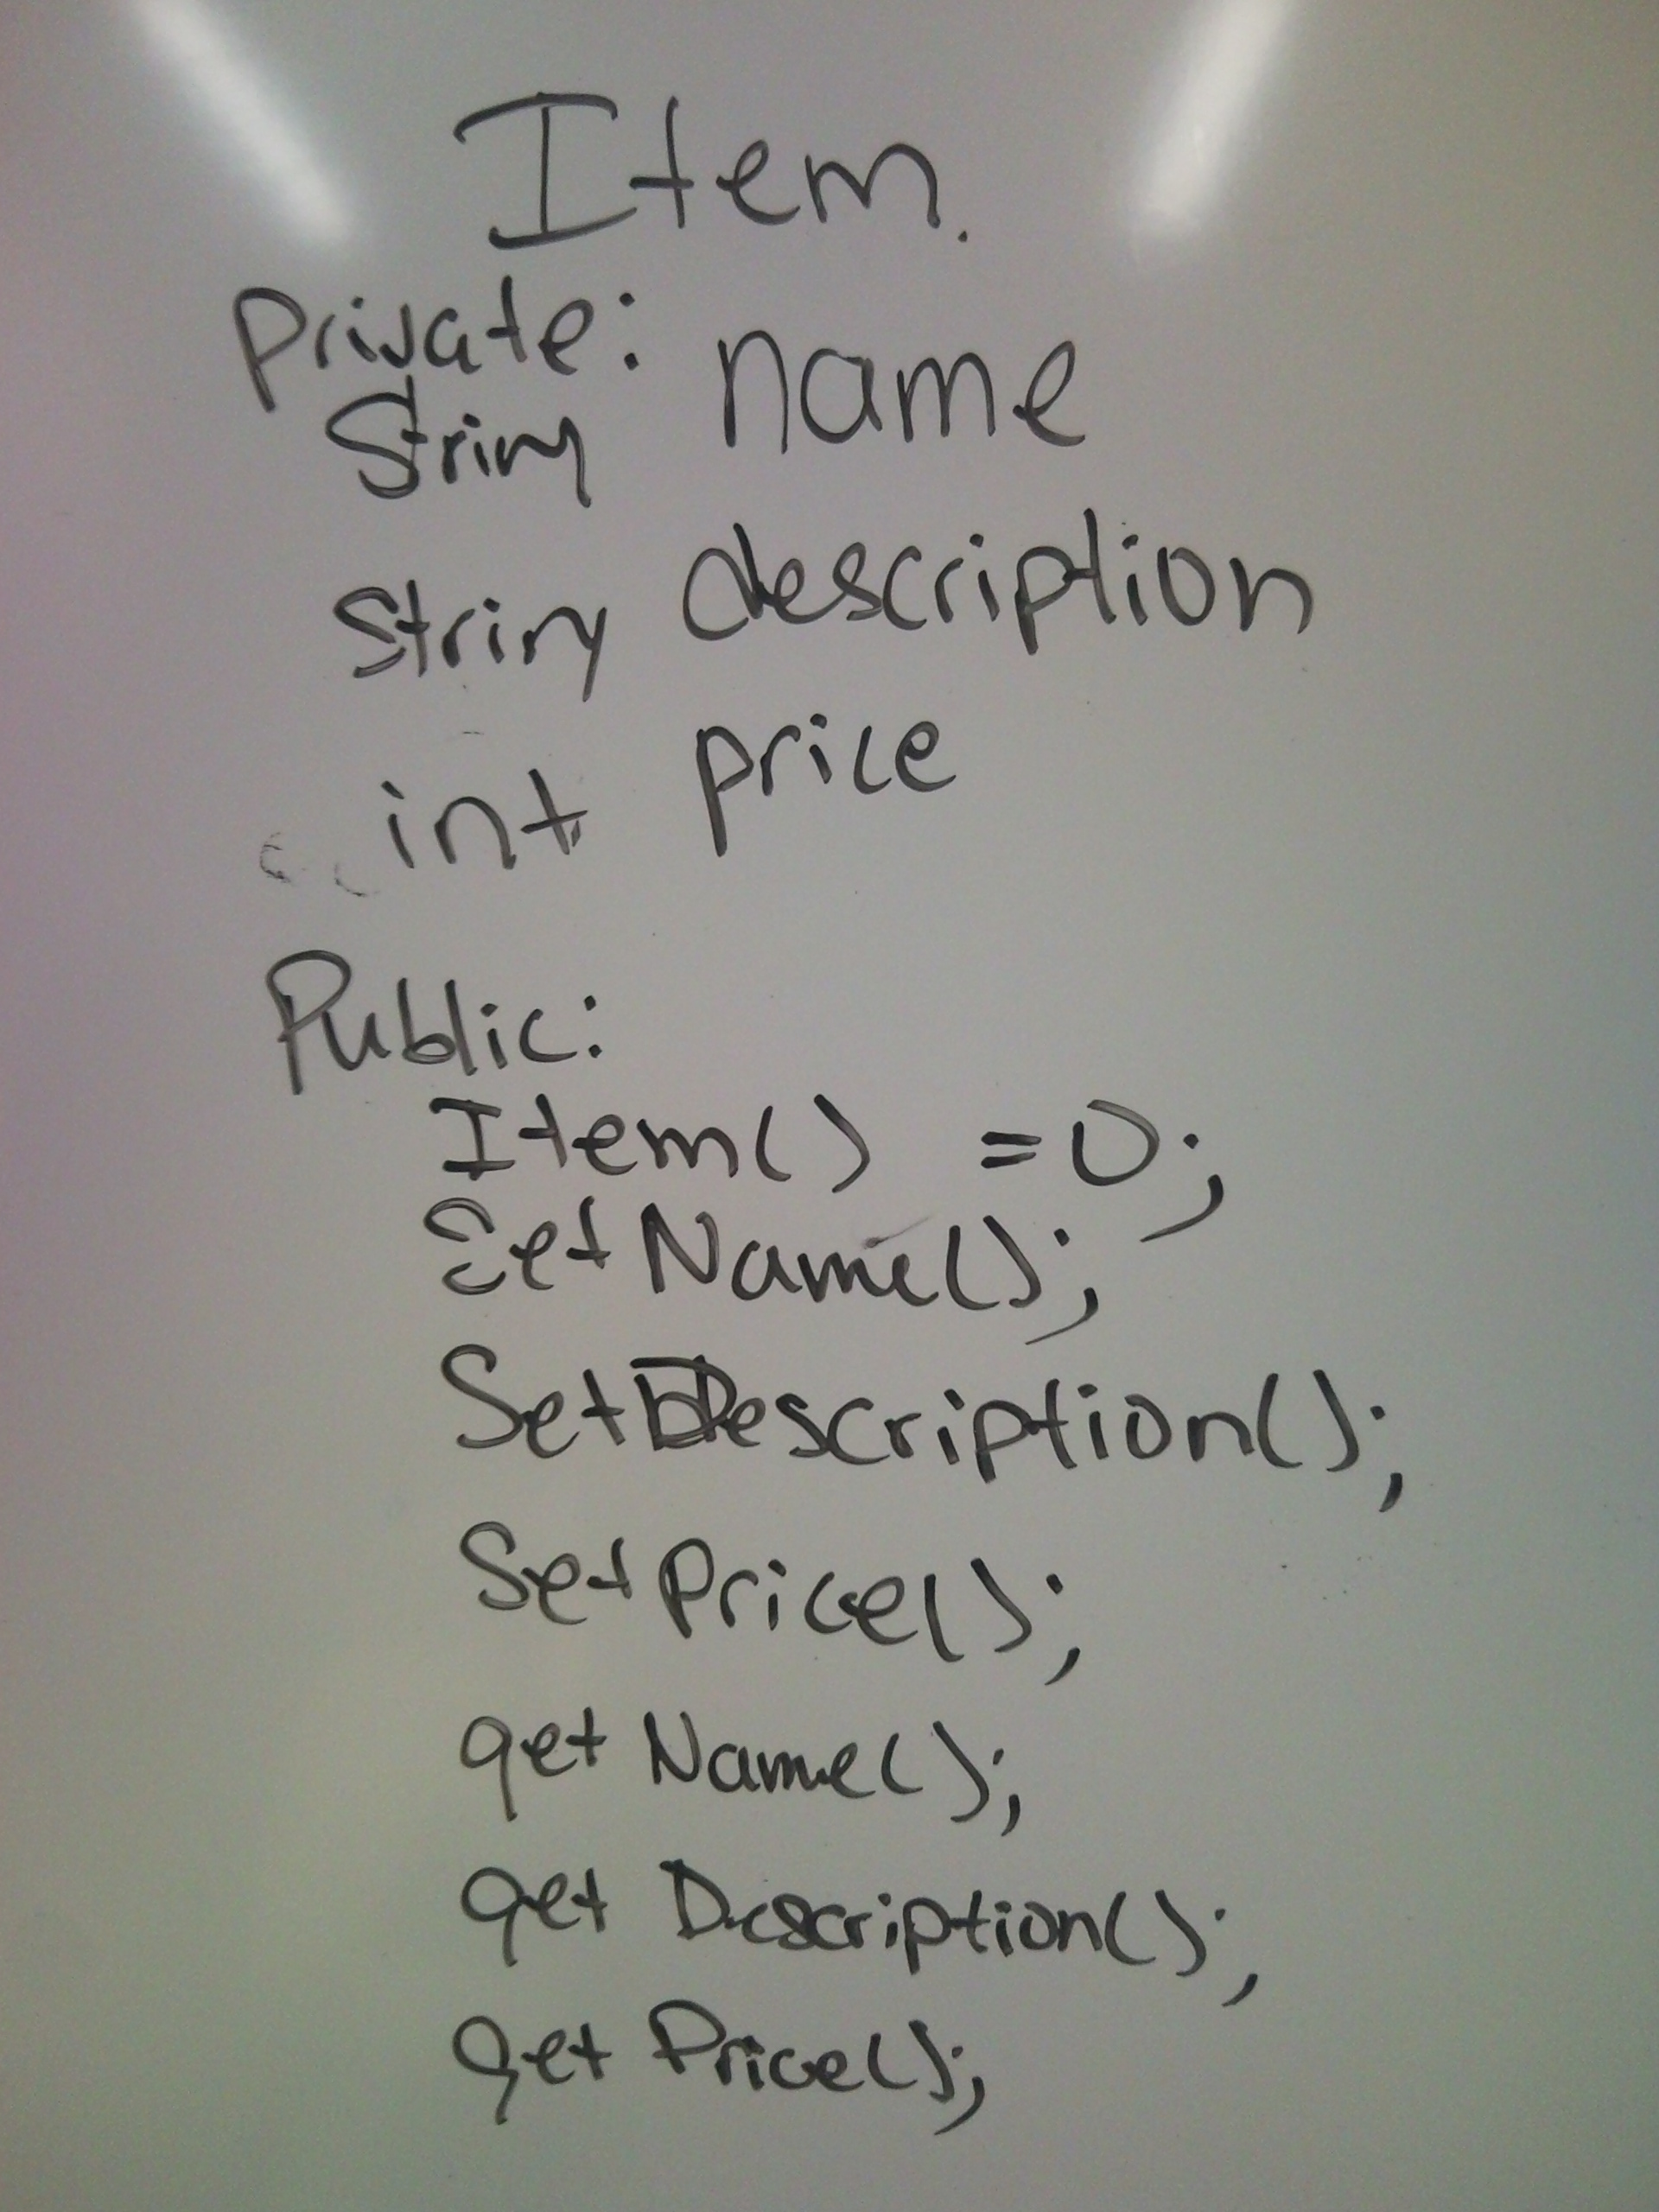 Item.
Private:
String name
String description
int price
Public:
Item() =0;
SetName();
SetDescription();
SetPrice();
getName();
getDescription();
getPrice();